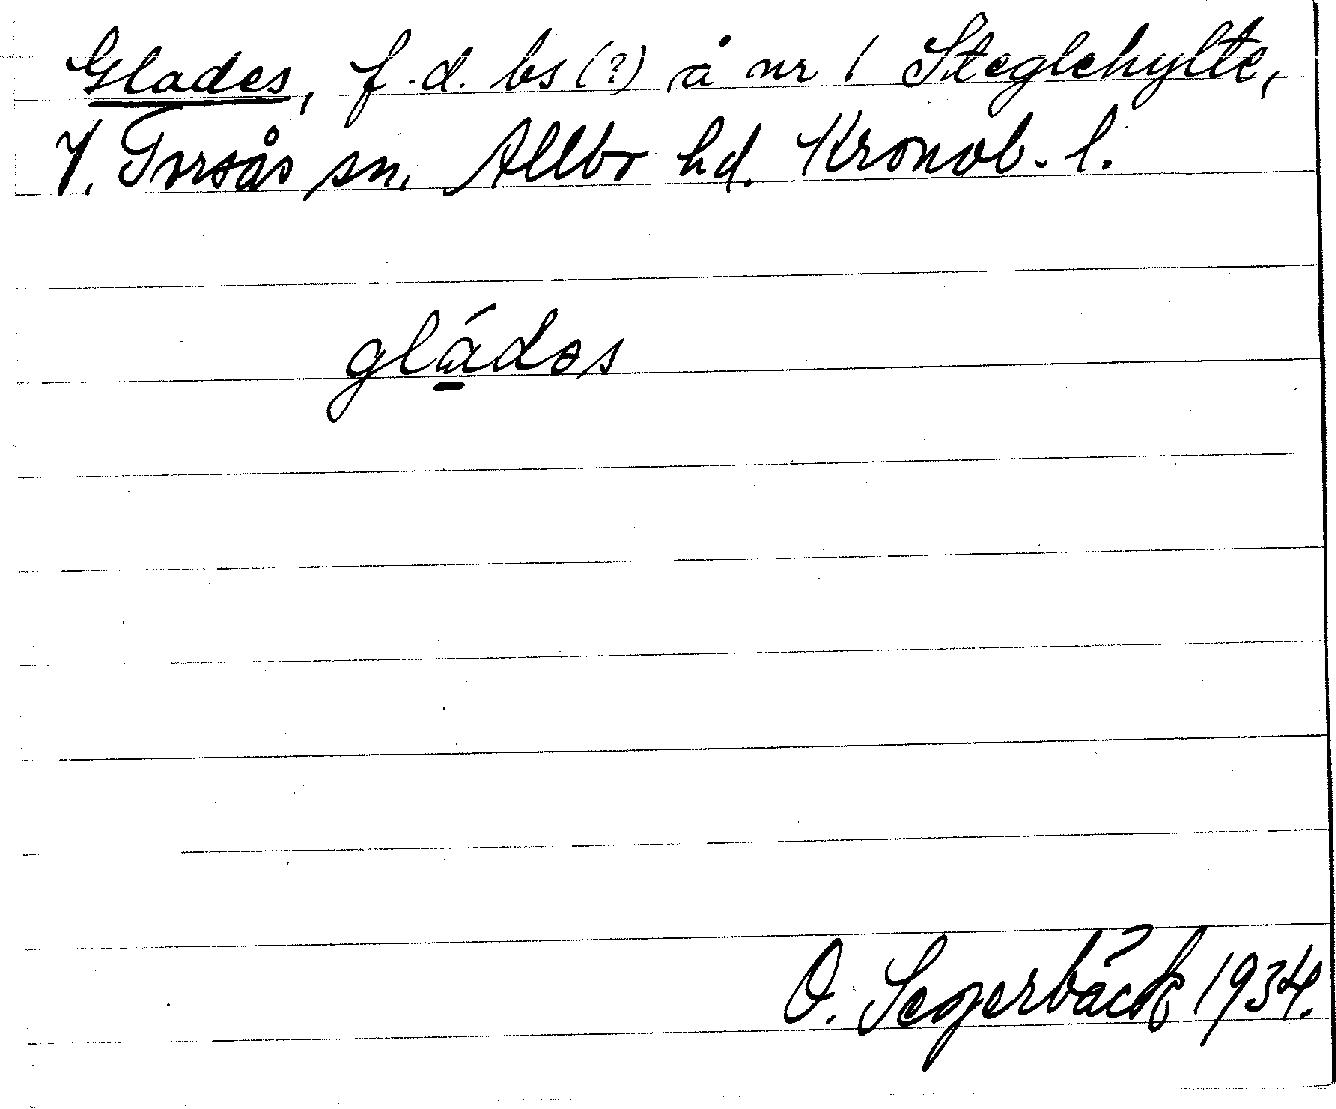 Glades, f.d. bs (?) å nr 1 Steglehylte,
V. Torsås sn. Allbo hd. Kronob. l.
gládəs
O. Segerbäck 1934.